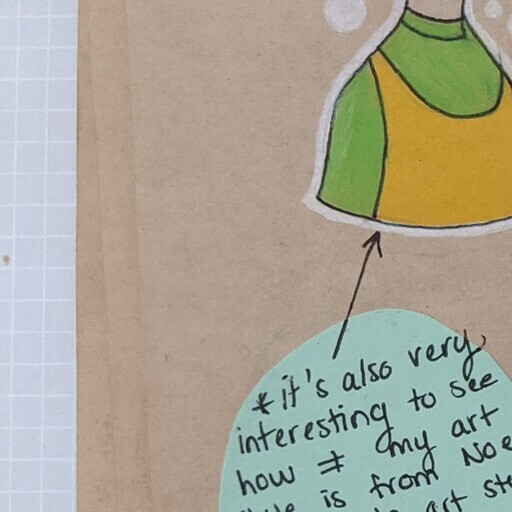 *it's also very
interesting to see
how ≠ my art
is from Noe
art